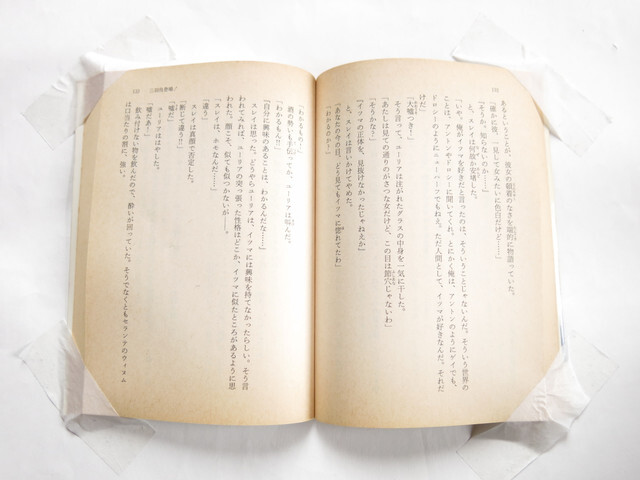 133
あるということが、彼女の顧着のなさを端的に物語っていた。
「確かに彼、一見して女みたいに色白だけど……」
「そうか、知らないのか……」
と、スレイは何故か安堵した。
「いや、俺がイツマを好きだと言ったのは、そういうことじゃないんだ。そういう世界の
ことは、アントンかドロシーに聞いてくれ。とにかく俺は、アントンのようにゲイでも、
ドロシーのようなニューハーフでもねえ。ただ人間として、イツマが好きなんだ。それだ
けだ」
「大嘘つき！」
そう言って、ユーリアは注がれたグラスの中身を一気に干した。
「そうかな？」
「あたしは見ての通りのがさつな女だけど、この目は節穴じゃないわ」
「イツマの正体を、見抜けなかったじゃねえか」
と、スレイは言いかけてやめた。
「あなたの今の目、どう見てもイツマに惚れてたわ」
「わかるのか？」
132　三回角登場！
「わかるもの！」
酒の勢いも手伝ってか、ユーリアは叫んだ。
「わかるもん!!」
（自分に興味のあることは、わかるんだな……）
スレイは思った。どうやらユーリアは、イツマには興味を持てなかったらしい。そう言
われてみれば、ユーリアの突っ張った性格はどこか、イツマに似たところがあるように思
われた。顔こそ、似ても似つかないが――。
「スレイは、ホモなんだ……」
「違う」
スレイは真顔で否定した。
「嘘だ」
「断じて違う!!」
「嘘だあ！」
ユーリアははやした。
飲み付けない物を飲んだので、酔いが回っていた。そうでなくともセランアのウィヌム
は口当たりの割に、強い。